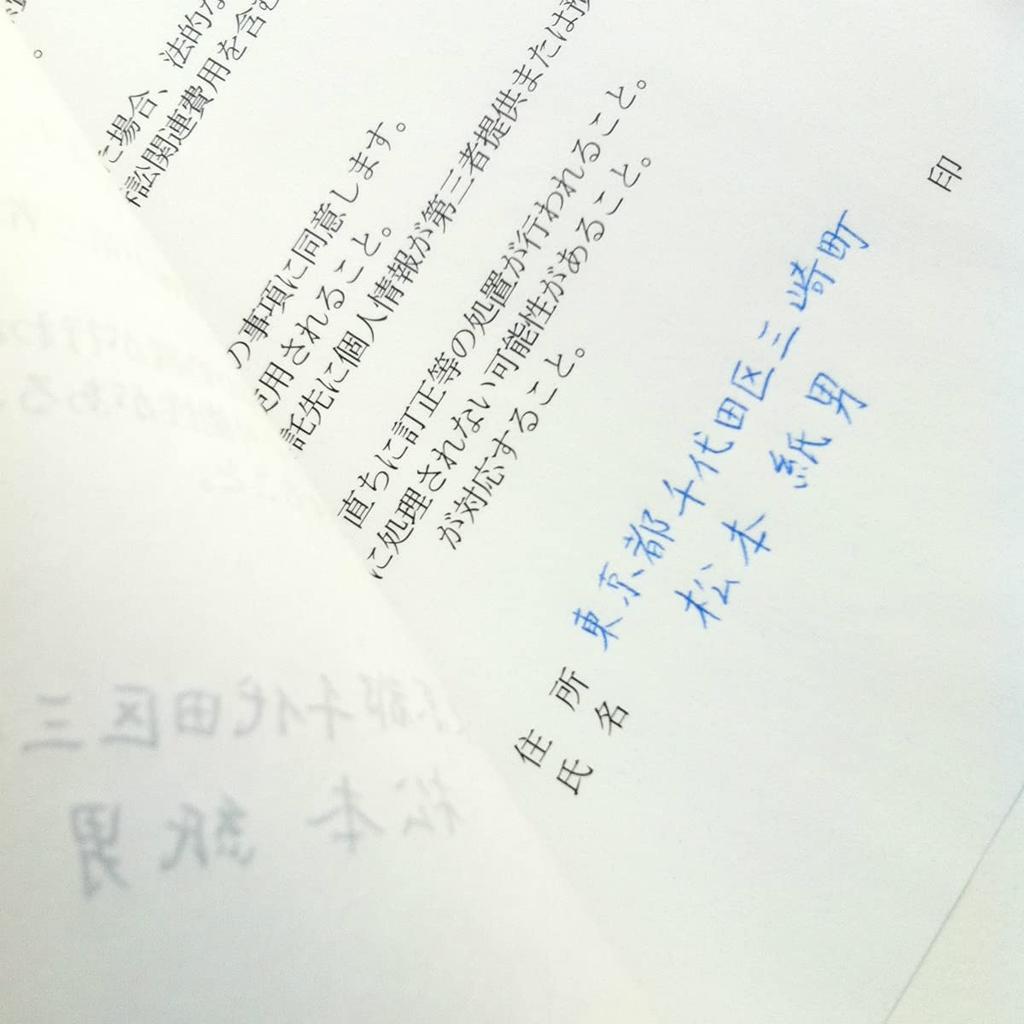 場合、法的な
訟関連費用を含む
の事項に同意します。
使用されること。
託先に個人情報が第三者提供または
直ちに訂正等の処置が行われること。
に処理されない可能性があること。
が対応すること。
印
住所 東京都千代田区三崎町
氏名 松本紙男
京都千代田区三
松本紙男